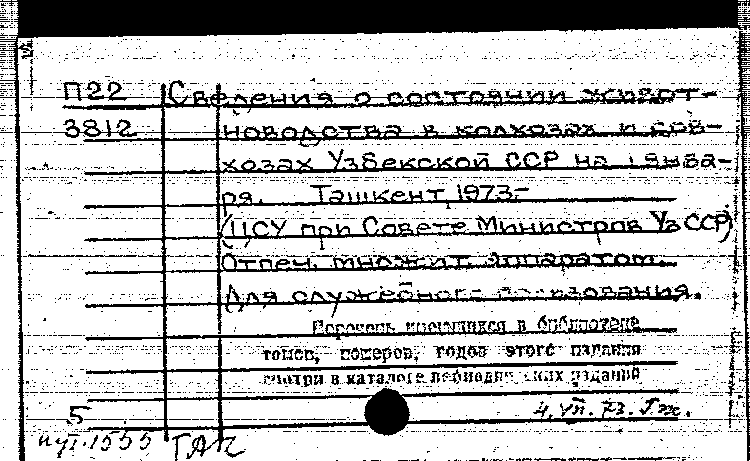 П22 Сведения о состоянии живот-
3812 новодства в колхозах и сов-
хозах Узбекской ССР на 1 янва-
ря. Ташкент, 1973-
(ЦСУ при Совете Министров УзССР)
Отпеч. множит. аппаратом.
Для служебного пользования.
Перечень имеющихся в библиотеке
томов, номеров, годов этого издания
смотри в каталоге периодических изданий
5 4. VII. 73.
1555